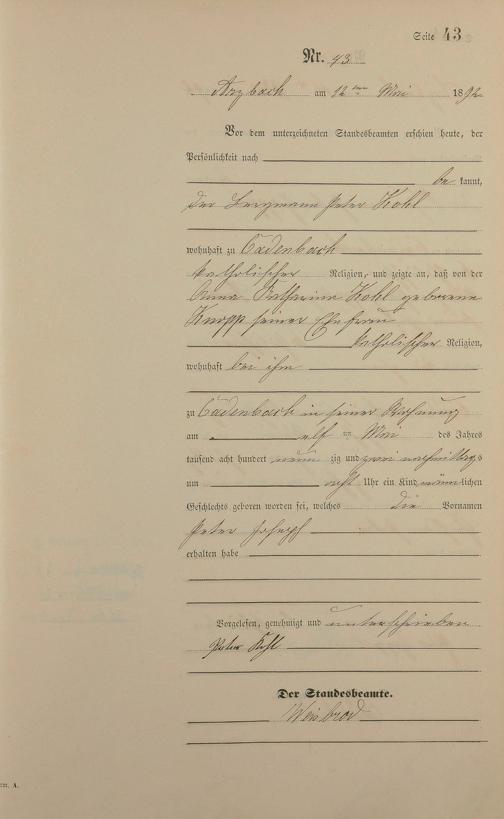 Seite 43
Nr. 43
Arzbach am 12ten Mai 1892
Vor dem unterzeichneten Standesbeamten erschien heute, der
Persönlichkeit nach
be kannt,
der Bergmann Peter Kohl
wohnhaft zu Cadenbach
katholischer Religion, und zeigte an, daß von der
Anna Katharina Kohl geborene
Knopp seiner Ehefrau
katholischer Religion,
wohnhaft bei ihm
zu Cadenbach in seiner Wohnung
am elf ten Mai des Jahres
tausend acht hundert neun zig und zwei nachmittags
um acht Uhr ein Kind männlichen
Geschlechts geboren worden sei, welches die Vornamen
Peter Joseph
erhalten habe
Vorgelesen, genehmigt und unterschrieben
Peter Kohl
Der Standesbeamte.
Weisbrod
rm. A.